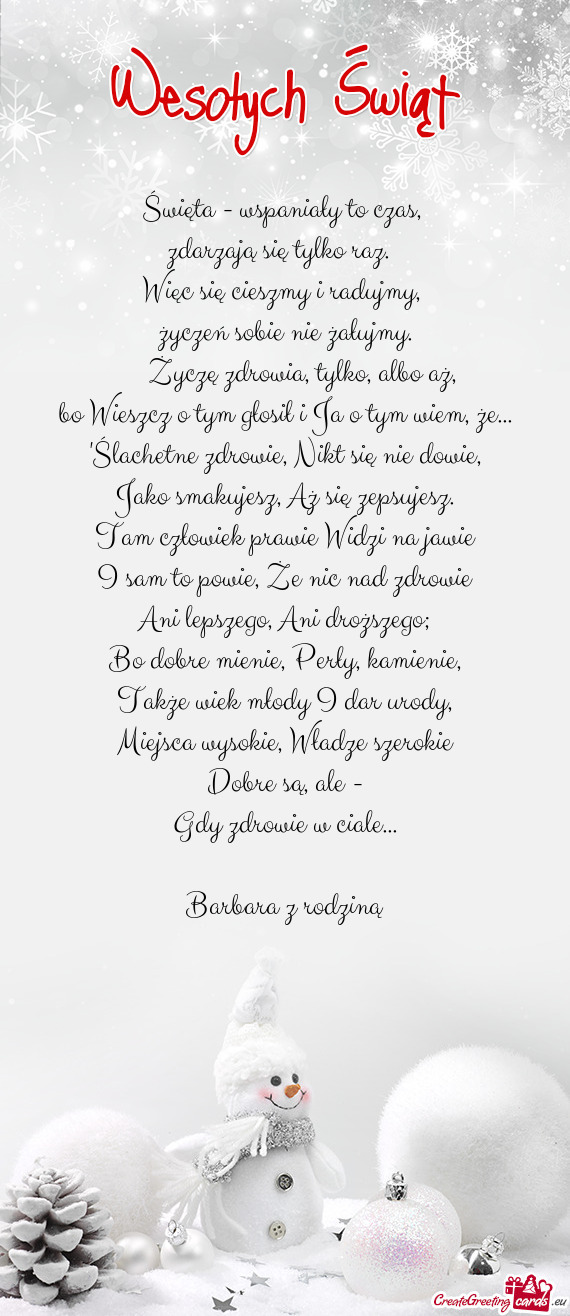 Wesołych Świąt
Święta - wspaniały to czas,
zdarzają się tylko raz.
Więc się cieszmy i radujmy,
życzeń sobie nie żałujmy.
Życzę zdrowia, tylko, albo aż,
bo Wieszcz o tym głosił i Ja o tym wiem, że...
'Ślachetne zdrowie, Nikt się nie dowie,
Jako smakujesz, Aż się zepsujesz.
Tam człowiek prawie Widzi na jawie
I sam to powie, Że nic nad zdrowie
Ani lepszego, Ani droższego;
Bo dobre mienie, Perły, kamienie,
Także wiek młody I dar urody,
Miejsca wysokie, Władze szerokie
Dobre są, ale -
Gdy zdrowie w ciale...
Barbara z rodziną
CreateGreetingcards.eu